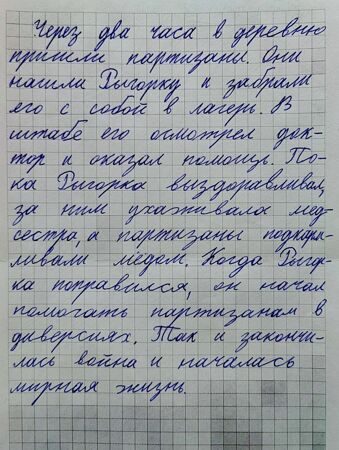 Через два часа в деревню
пришли партизани. Они
нашли Рыгорку и забрали
его с собой в лагерь. В
штабе его осмотрел док-
тор и оказал помощь. По-
ка Рыгорка выздоравливал,
за ним ухаживала мед-
сестра, а партизаны подкарм-
ливали медом. Когда Рыгор-
ка поправился, он начал
помогать партизанам в
диверсиях. Так и закончи-
лась война и началась
мирная жизнь.